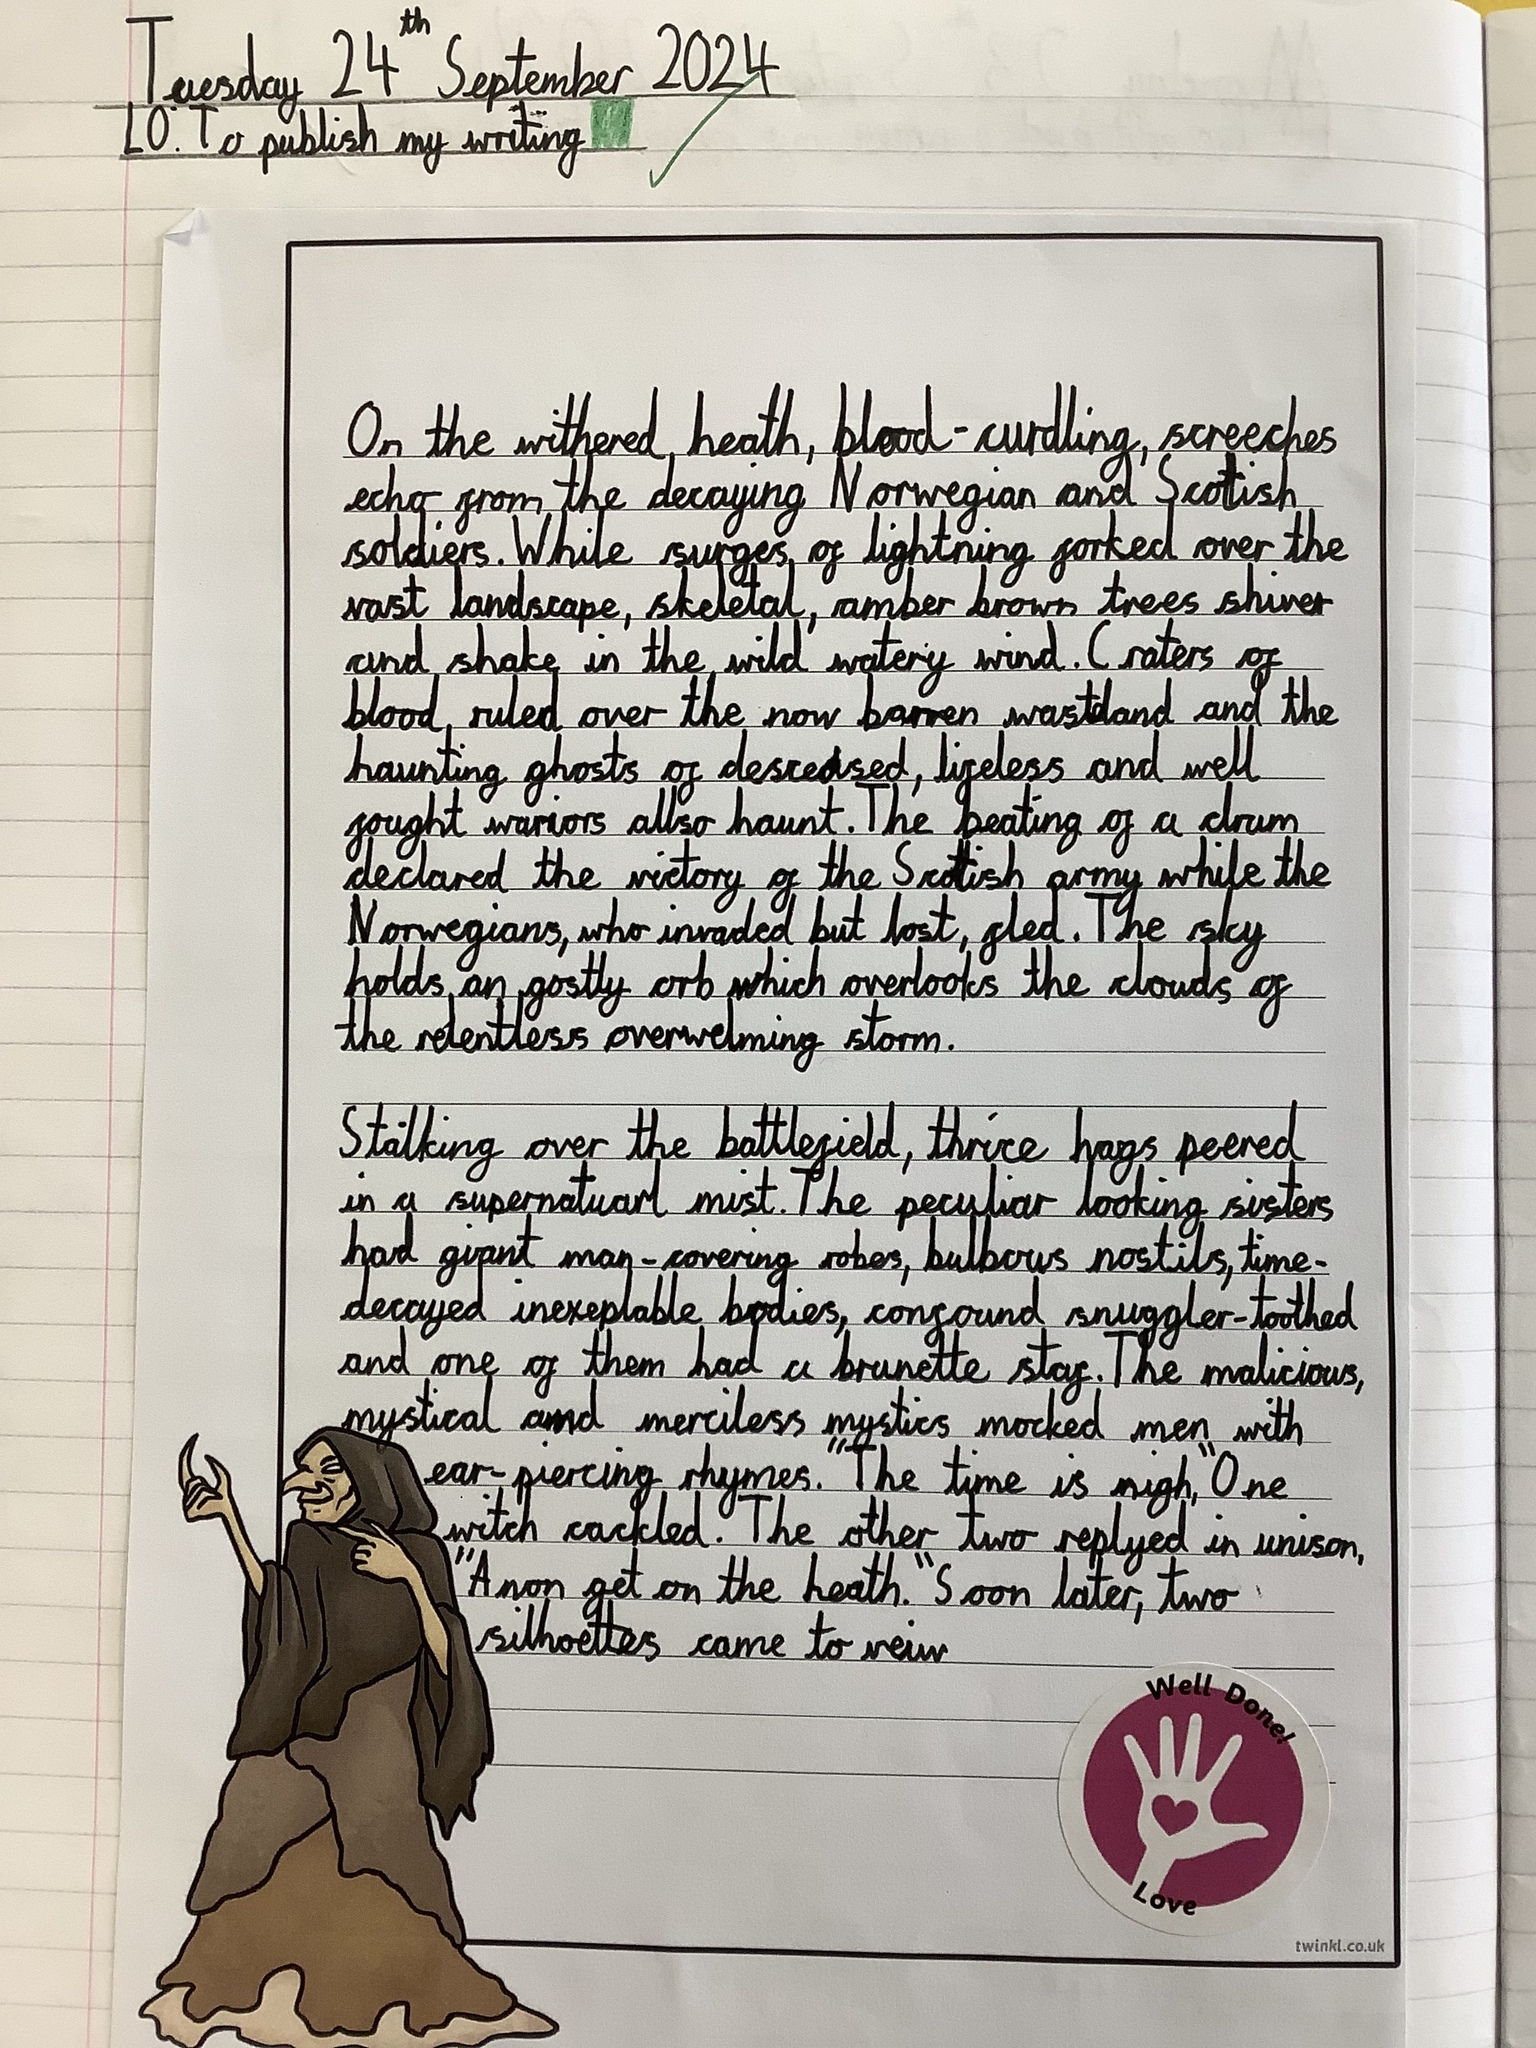 Tuesday 24th September 2024
LO: To publish my writing
On the withered heath, blood-curdling, screeches
echo from the decaying Norwegian and Scotish
soldiers. While surges of lightning forked over the
vast landscape, skeletal, amber brown trees shiver
and shake in the wild watery wind. Craters of
blood ruled over the now barren wasteland and the
haunting ghosts of desceased, lifeless and well
fought warriors allso haunt. The beating of a drum
declared the victory of the Scottish army while the
Norwegians, who invaded but lost, fled. The sky
holds an gostly orb which overlooks the clouds of
the relentless overwelming storm.
Stalking over the battlefield, thrice hags peered
in a supernatuarl mist. The peculiar looking sisters
had giant man-covering robes, bulbous nostils, time-
decayed inexeplable bodies, confound snuggler-toothed
and one of them had a brunette staf. The malicious,
mystical and merciless mystics mocked men with
ear-piercing rhymes. "The time is nigh," One
witch cackled. The other two replyed in unison,
"Anon get on the heath." Soon later, two
silhoettes came to veiw
Well Done!
Love
twinkl.co.uk